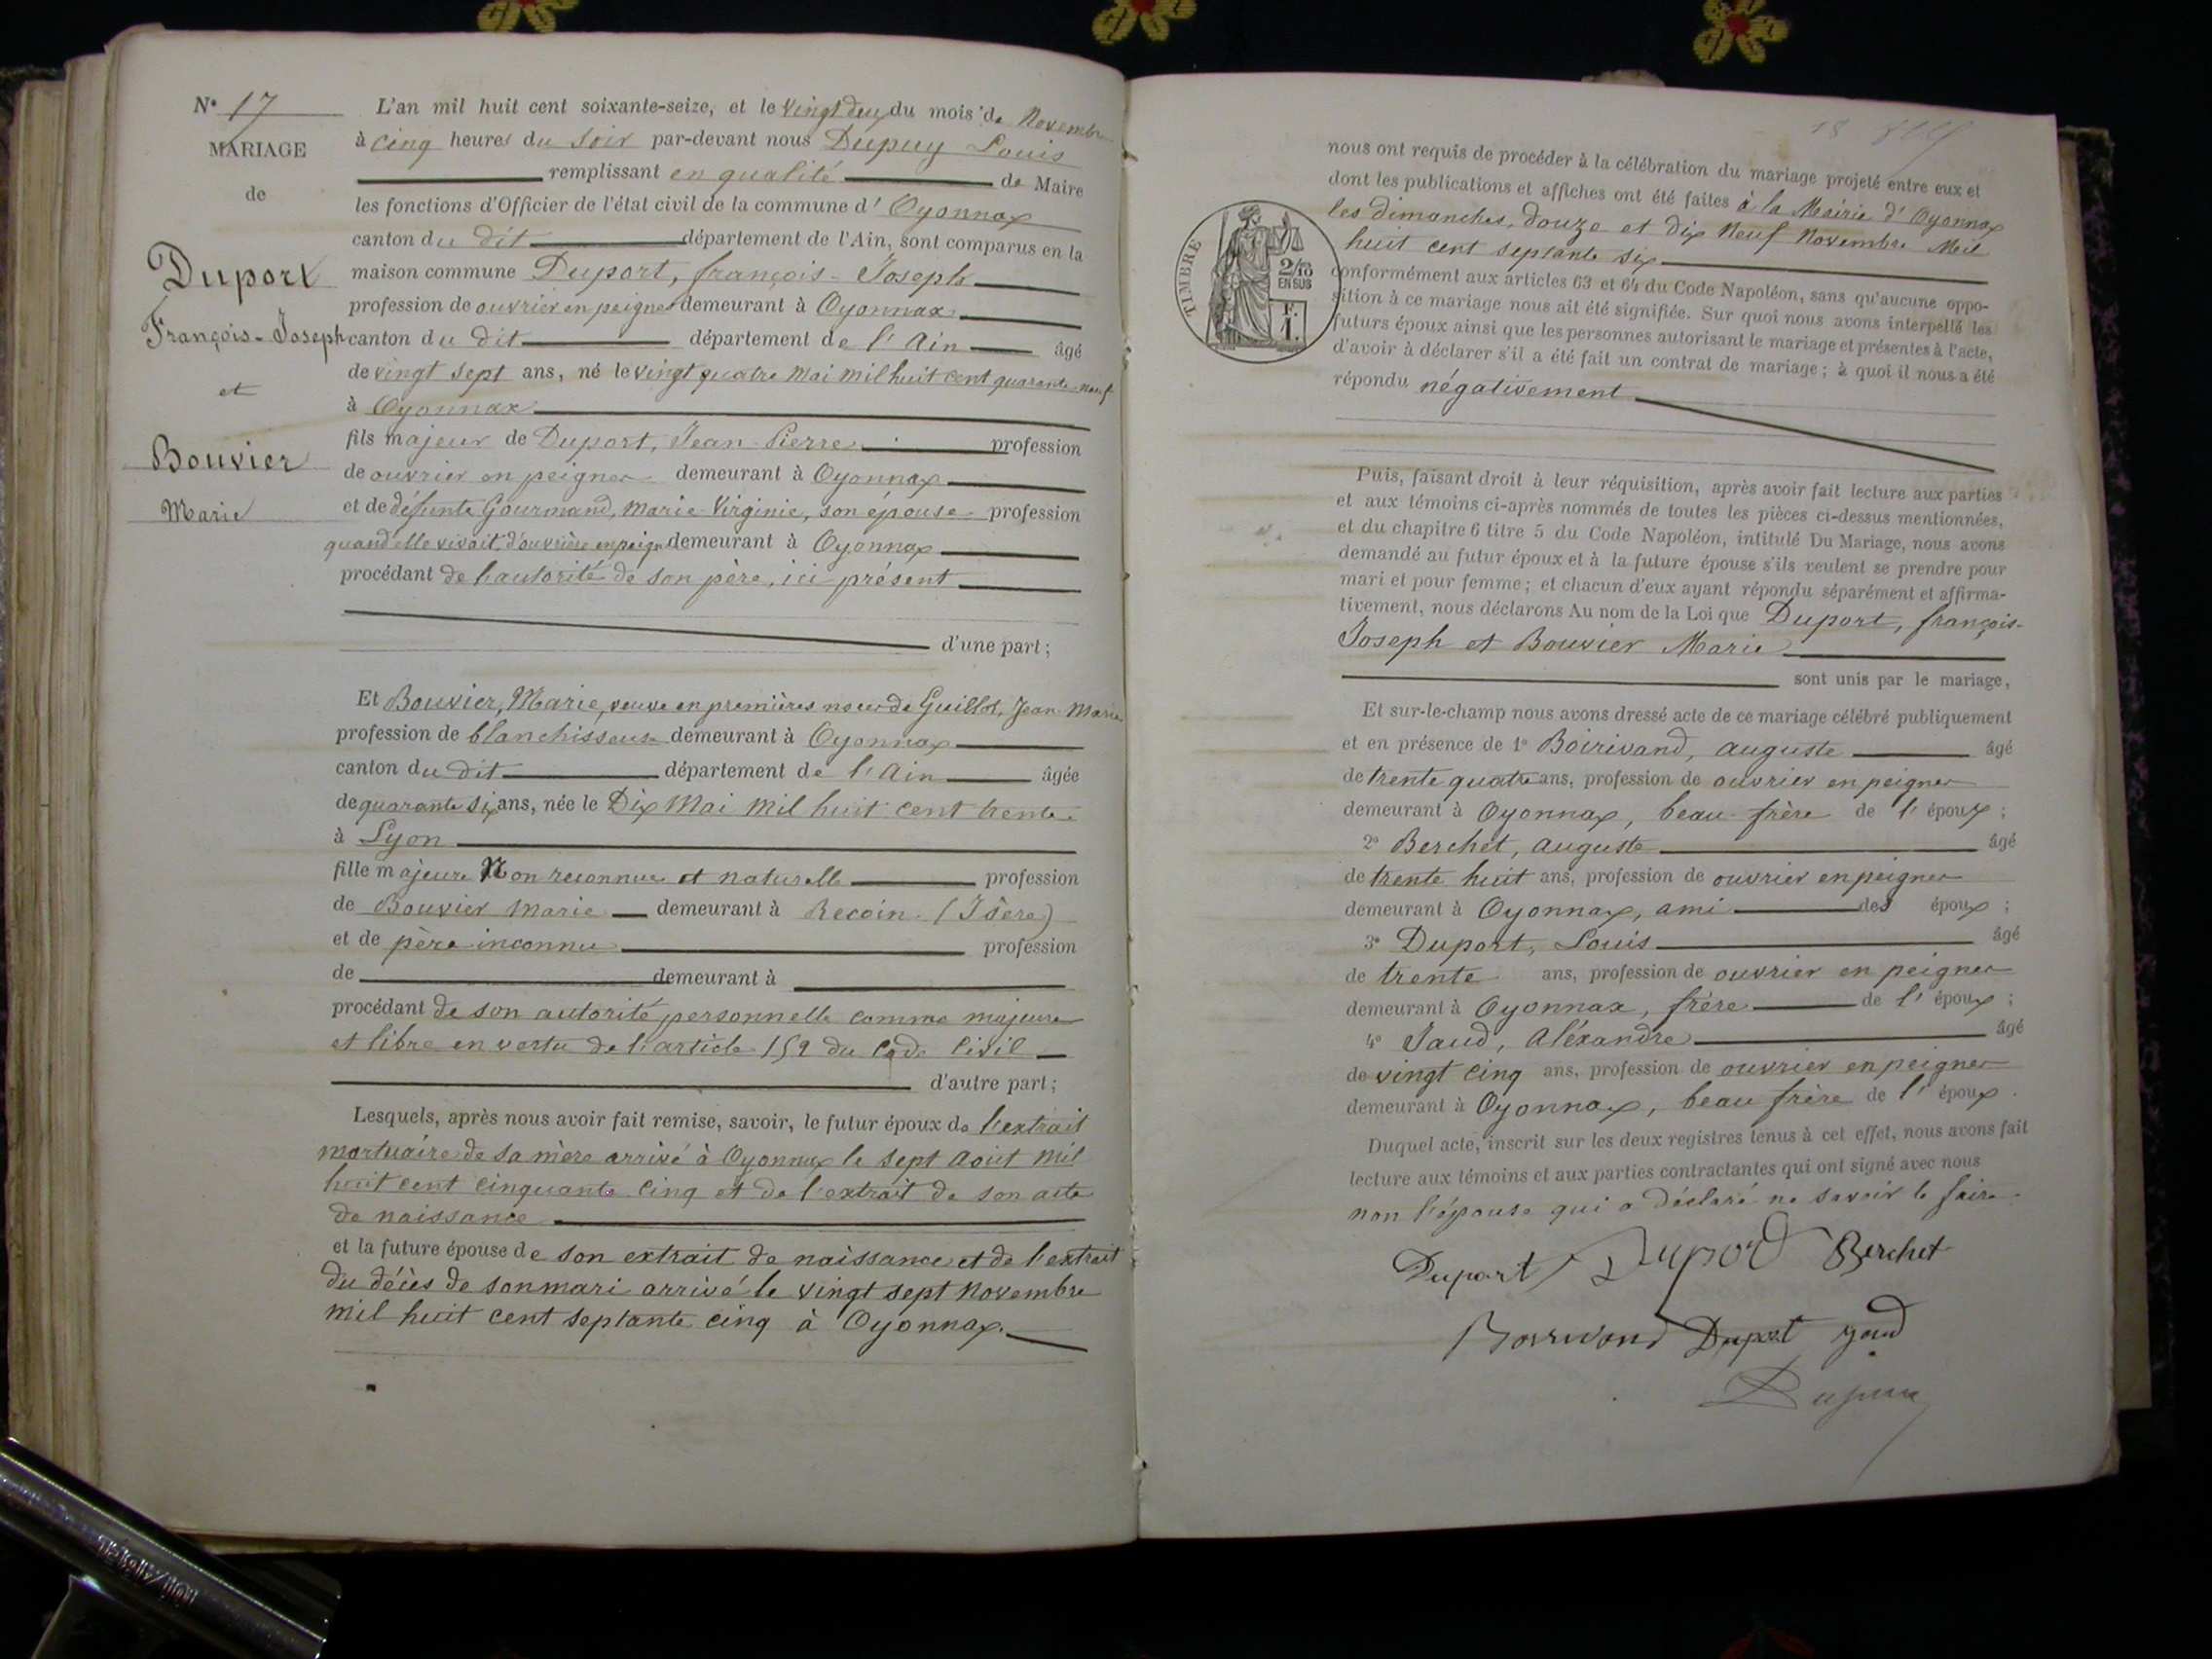 N° 17
MARIAGE
de
Duport
François-Joseph
et
Bouvier
Marie
L'an mil huit cent soixante-seize, et le vingt deux du mois de Novembre
à cinq heures du soir par-devant nous Dupuy Louis
remplissant en qualité de Maire
les fonctions d'Officier de l'état civil de la commune d'Oyonnax
canton du dit département de l'Ain, sont comparus en la
maison commune Duport, françois-Joseph
profession de ouvrier en peignes demeurant à Oyonnax
canton du dit département de l'Ain âgé
de vingt sept ans, né le vingt quatre Mai mil huit cent quarante-neuf
à Oyonnax
fils majeur de Duport, Jean-Pierre profession
de ouvrier en peignes demeurant à Oyonnax
et de défunte Gourmand, Marie-Virginie, son épouse profession
quand elle vivait, d'ouvrière en peign demeurant à Oyonnax
procédant de l'autorité de son père, ici présent
d'une part;
Et Bouvier, Marie, veuve en premières noces de Guillot, Jean-Marie
profession de blanchisseuse demeurant à Oyonnax
canton du dit département de l'Ain âgée
de quarante six ans, née le Dix Mai mil huit cent trente
à Lyon
fille majeure Non reconnue et naturelle profession
de Bouvier Marie demeurant à Recoin (Isère)
et de père inconnu profession
de demeurant à
procédant de son autorité personnelle comme majeure
et libre en vertu de l'article 159 du Code Civil
d'autre part;
Lesquels, après nous avoir fait remise, savoir, le futur époux de l'extrait
mortuaire de sa mère arrivé à Oyonnax le sept Aout mil
huit cent cinquante cinq et de l'extrait de son acte
de naissance
et la future épouse de son extrait de naissance et de l'extrait
du décès de son mari arrivé le vingt sept Novembre
mil huit cent septante cinq à Oyonnax.
nous ont requis de procéder à la célébration du mariage projeté entre eux et
dont les publications et affiches ont été faites à la Mairie d'Oyonnax
les dimanches, douze et dix Neuf Novembre Mil
huit cent septante six
TIMBRE
2/10
EN SUS
F.
1.
conformément aux articles 63 et 64 du Code Napoléon, sans qu'aucune oppo-
sition à ce mariage nous ait été signifiée. Sur quoi nous avons interpellé les
futurs époux ainsi que les personnes autorisant le mariage et présentes à l'acte,
d'avoir à déclarer s'il a été fait un contrat de mariage; à quoi il nous a été
répondu négativement
Puis, faisant droit à leur réquisition, après avoir fait lecture aux parties
et aux témoins ci-après nommés de toutes les pièces ci-dessus mentionnées,
et du chapitre 6 titre 5 du Code Napoléon, intitulé Du Mariage, nous avons
demandé au futur époux et à la future épouse s'ils veulent se prendre pour
mari et pour femme; et chacun d'eux ayant répondu séparément et affirma-
tivement, nous déclarons Au nom de la Loi que Duport, françois-
Joseph et Bouvier Marie
sont unis par le mariage,
Et sur-le-champ nous avons dressé acte de ce mariage célébré publiquement
et en présence de 1° Boirivand, auguste âgé
de trente quatre ans, profession de ouvrier en peignes
demeurant à Oyonnax, beau-frère de l'époux;
2° Berchet, auguste âgé
de trente huit ans, profession de ouvrier en peignes
demeurant à Oyonnax, ami des époux;
3° Duport, Louis âgé
de trente ans, profession de ouvrier en peignes
demeurant à Oyonnax, frère de l'époux;
4° Jaud, Aléxandre âgé
de vingt cinq ans, profession de ouvrier en peignes
demeurant à Oyonnax, beau frère de l'époux.
Duquel acte, inscrit sur les deux registres tenus à cet effet, nous avons fait
lecture aux témoins et aux parties contractantes qui ont signé avec nous
non l'épouse qui a déclaré ne savoir le faire.
Duport Duport Berchet
Borrivand Duport
Dupuy